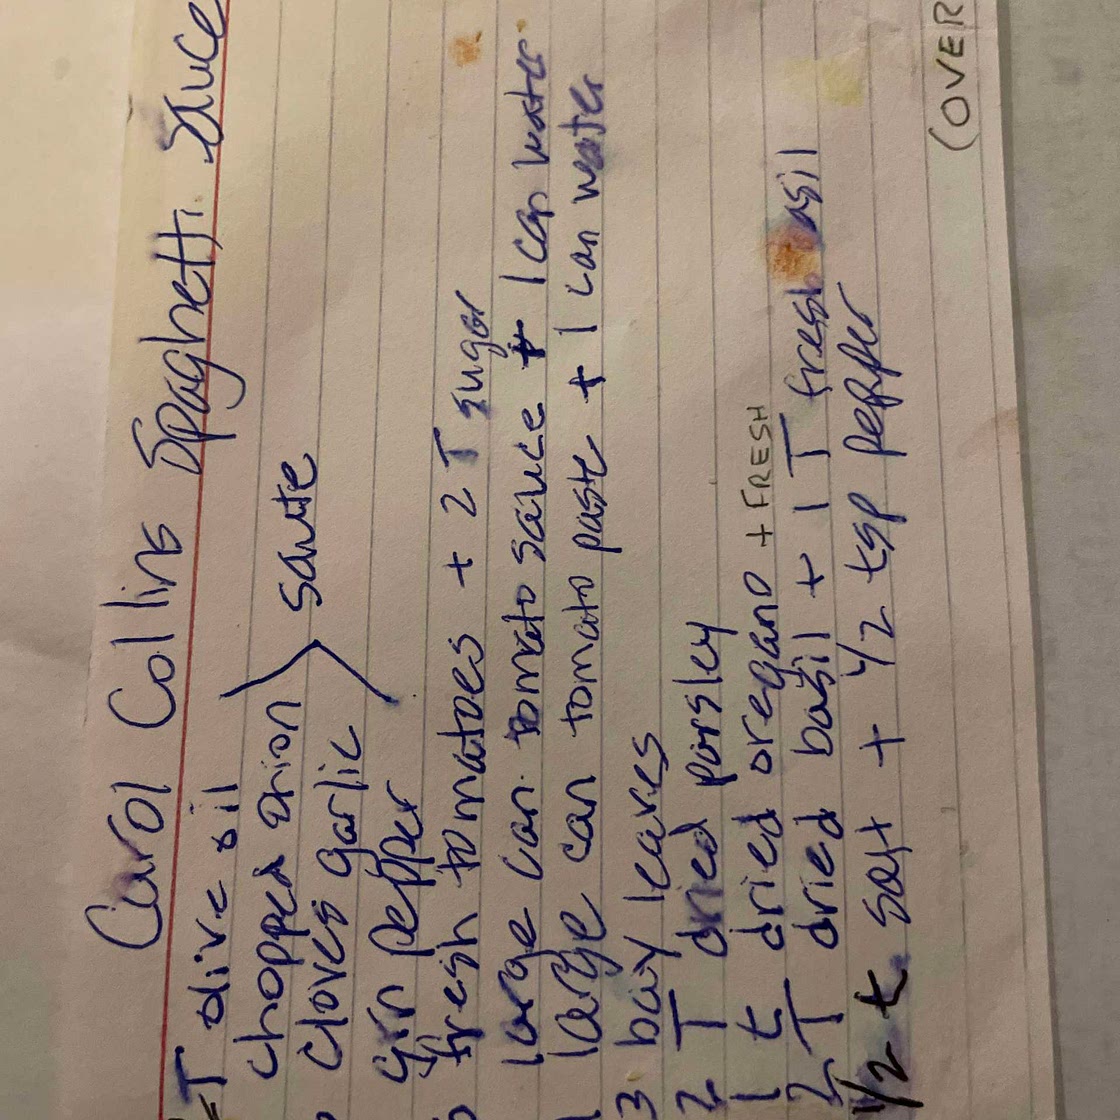 Carol Collins Spaghetti Sauce
T olive oil
chopped onion
cloves garlic
saute
grn pepper
fresh tomatoes + 2 T sugar
large can tomato sauce + 1 can water
1 large can tomato paste + 1 can water
3 bay leaves
2 T dried parsley
1 t dried oregano + FRESH
2 T dried basil + 1 T fresh basil
1/2 t salt + 1/2 tsp pepper
(OVER